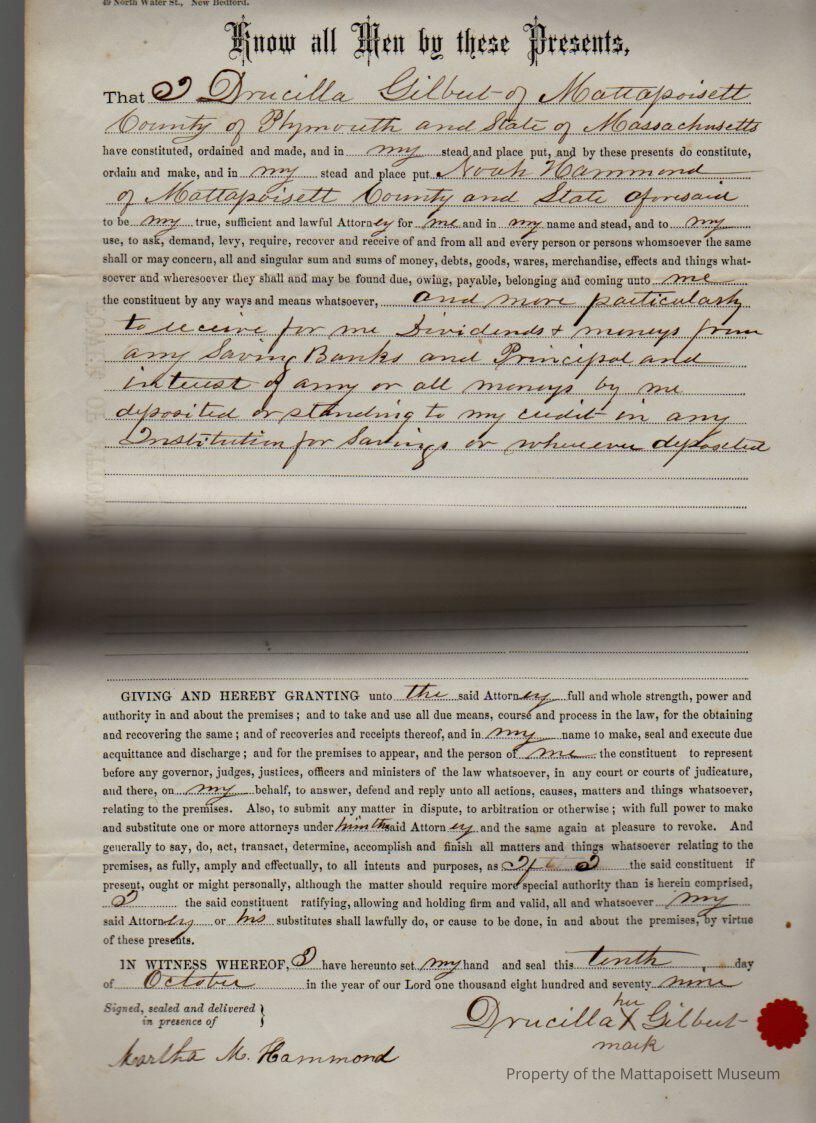 49 North Water St., New Bedford.
Know all Men by these Presents,
That I Drucilla Gilbert of Mattapoisett
County of Plymouth and State of Massachusetts
have constituted, ordained and made, and in my stead and place put, and by these presents do constitute,
ordain and make, and in my stead and place put Noah Hammond
of Mattapoisett County and State aforesaid
to be my true, sufficient and lawful Attorney for me and in my name and stead, and to my
use, to ask, demand, levy, require, recover and receive of and from all and every person or persons whomsoever the same
shall or may concern, all and singular sum and sums of money, debts, goods, wares, merchandise, effects and things what-
soever and wheresoever they shall and may be found due, owing, payable, belonging and coming unto me
the constituent by any ways and means whatsoever, and more particularly
to receive for me Dividends & moneys from
any Saving Banks and Principal and
interest of any or all moneys by me
deposited or standing to my credit in any
Institution for Savings or wherever deposited
GIVING AND HEREBY GRANTING unto the said Attorney full and whole strength, power and
authority in and about the premises; and to take and use all due means, course and process in the law, for the obtaining
and recovering the same; and of recoveries and receipts thereof, and in my name to make, seal and execute due
acquittance and discharge; and for the premises to appear, and the person of me the constituent to represent
before any governor, judges, justices, officers and ministers of the law whatsoever, in any court or courts of judicature,
and there, on my behalf, to answer, defend and reply unto all actions, causes, matters and things whatsoever,
relating to the premises. Also, to submit any matter in dispute, to arbitration or otherwise; with full power to make
and substitute one or more attorneys under him the said Attorney and the same again at pleasure to revoke. And
generally to say, do, act, transact, determine, accomplish and finish all matters and things whatsoever relating to the
premises, as fully, amply and effectually, to all intents and purposes, as I the said constituent if
present, ought or might personally, although the matter should require more special authority than is herein comprised,
I the said constituent ratifying, allowing and holding firm and valid, all and whatsoever my
said Attorney or his substitutes shall lawfully do, or cause to be done, in and about the premises, by virtue
of these presents.
IN WITNESS WHEREOF, I have hereunto set my hand and seal this tenth day
of October in the year of our Lord one thousand eight hundred and seventy nine
Signed, sealed and delivered
in presence of
her
Drucilla X Gilbert
mark
Martha M. Hammond
Property of the Mattapoisett Museum